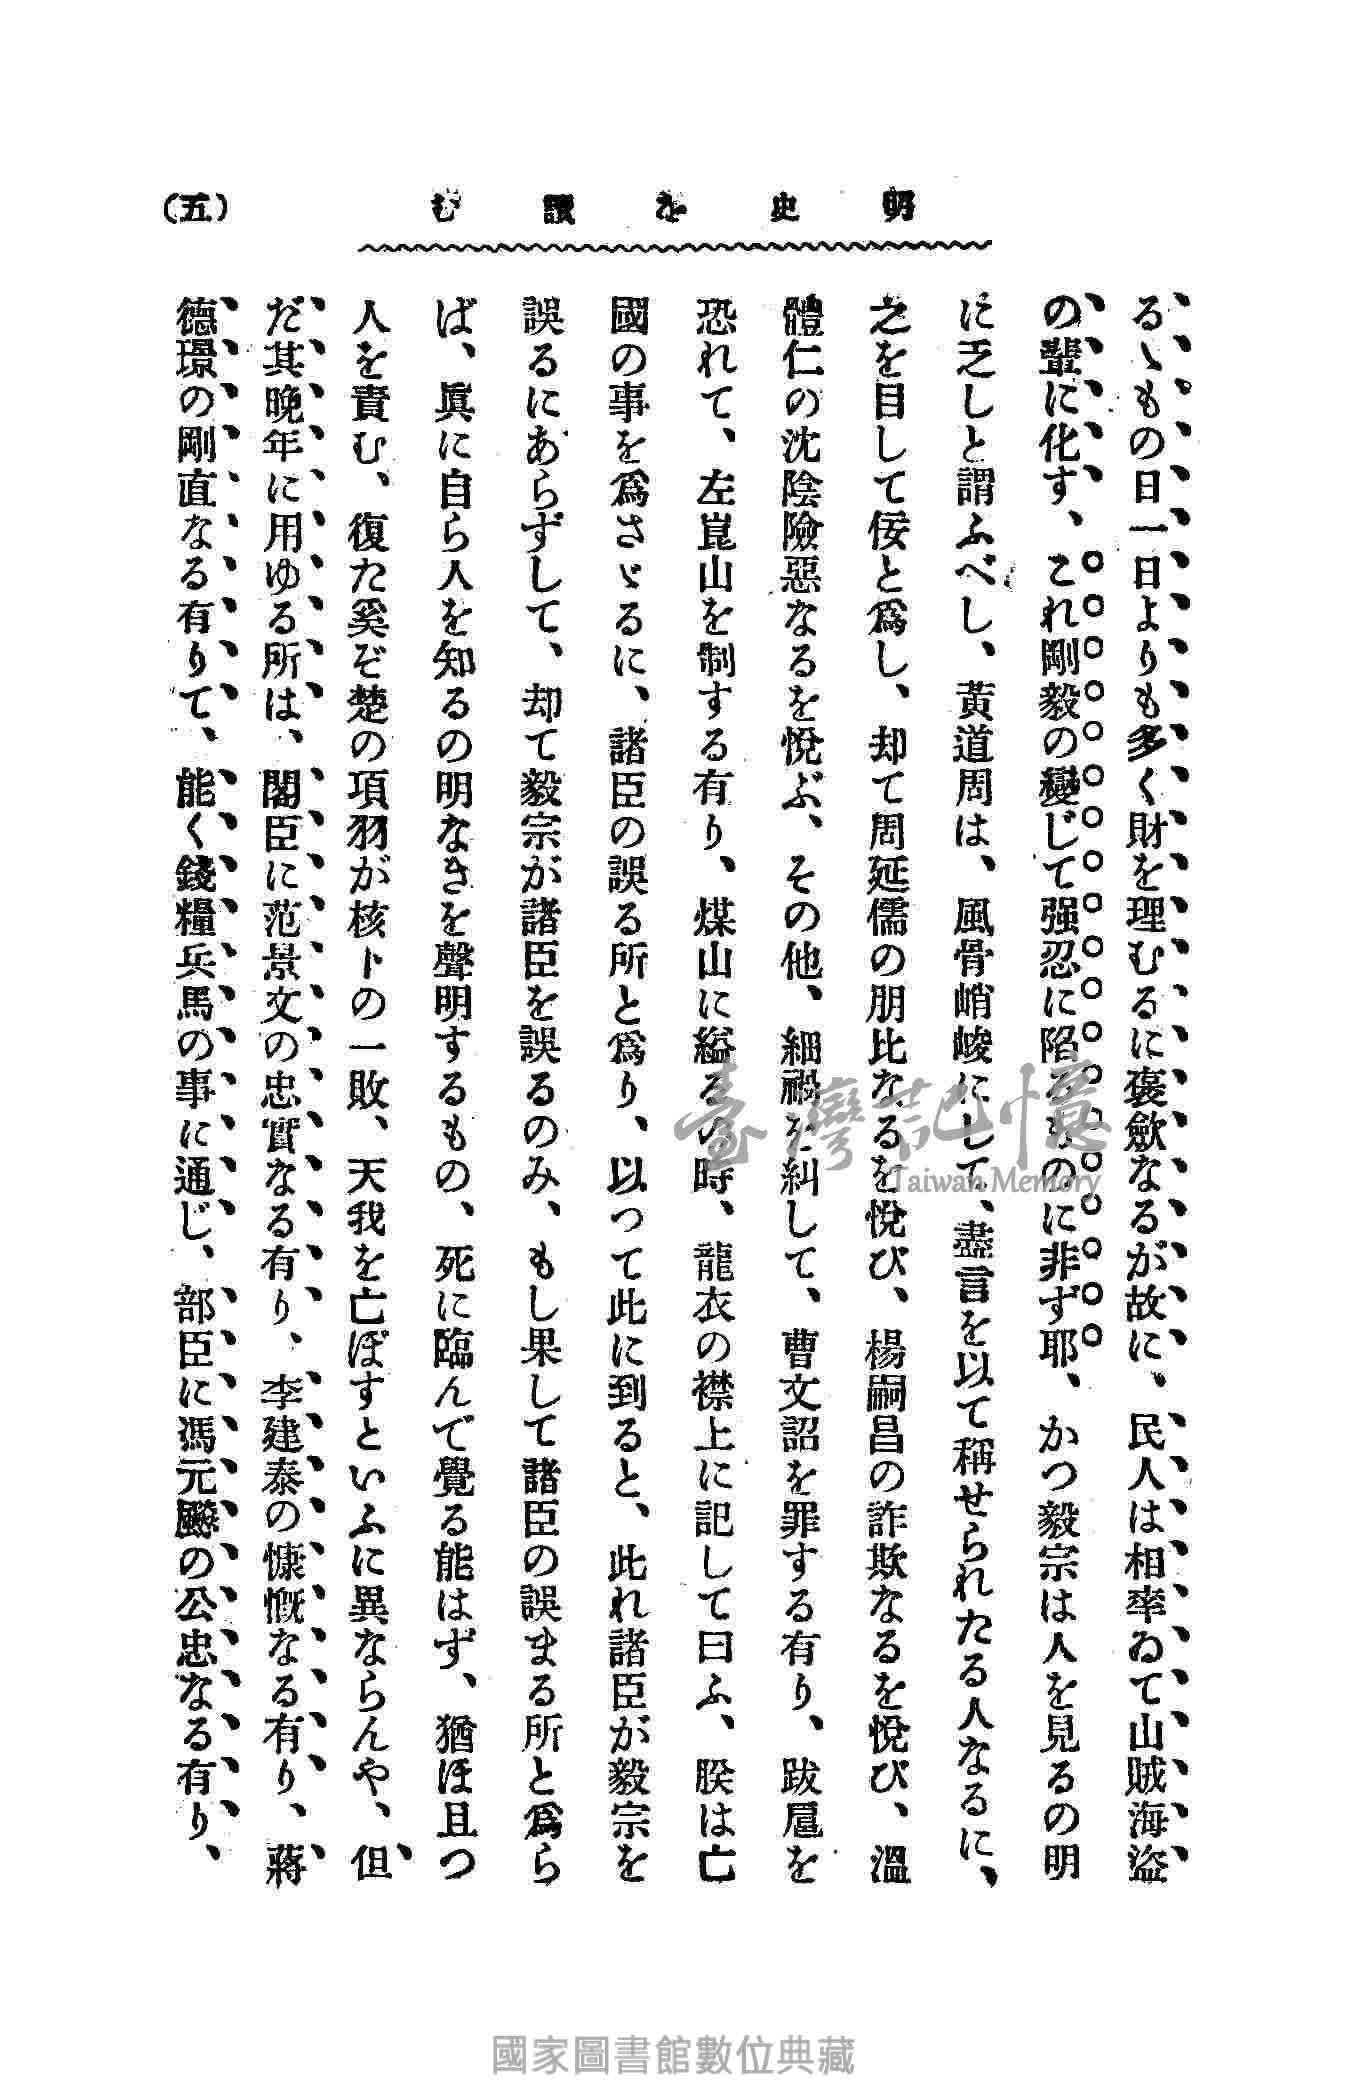 明史を讀む
(五)
るゝもの日一日よりも多く財を理むるに裒斂なるが故に、民人は相率ゐて山賊海盜
の輩に化す、これ剛毅の變じて强忍に陷るものに非ず耶、かつ毅宗は人を見るの明
に乏しと謂ふべし、黃道周は、風骨峭峻にして、盡言を以て稱せられたる人なるに、
之を目して佞と爲し、却て周延儒の朋比なるを悅び、楊嗣昌の詐欺なるを悅び、溫
體仁の沈陰險惡なるを悅ぶ、その他、細過を糾して、曹文詔を罪する有り、跋扈を
恐れて、左崑山を制する有り、煤山に縊るの時、龍衣の襟上に記して曰ふ、朕は亡
國の事を爲さゞるに、諸臣の誤る所と爲り、以つて此に到ると、此れ諸臣が毅宗を
誤るにあらずして、却て毅宗が諸臣を誤るのみ、もし果して諸臣の誤まる所と爲ら
ば、眞に自ら人を知るの明なきを聲明するもの、死に臨んで覺る能はず、猶ほ且つ
人を責む、復た奚ぞ楚の項羽が核下の一敗、天我を亡ぼすといふに異ならんや、但
だ其晚年に用ゆる所は、閣臣に范景文の忠實なる有り、李建泰の慷慨なる有り、蔣
德璟の剛直なる有りて、能く錢糧兵馬の事に通じ、部臣に馮元飈の公忠なる有り、
臺灣記憶
Taiwan Memory
國家圖書館數位典藏